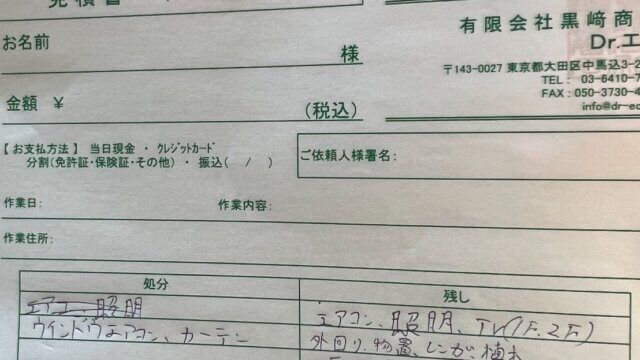 見積書
有限会社黒﨑商
Dr.エ
お名前
様
〒143-0027 東京都大田区中馬込3-2
TEL： 03-6410-7
FAX：050-3730-4
info@dr-ec
金額 ¥
(税込)
【 お支払方法 】 当日現金 ・ ｸﾚｼﾞｯﾄｶｰﾄﾞ
分割(免許証・保険証・その他) ・ 振込( / )
ご依頼人様署名：
作業日：
作業内容：
作業住所：
処分
残し
エアコン 照明
ウインドウエアコン、カーテン
エアコン、照明、TV(1F.2F)
外回り、物置、レンガ、植木